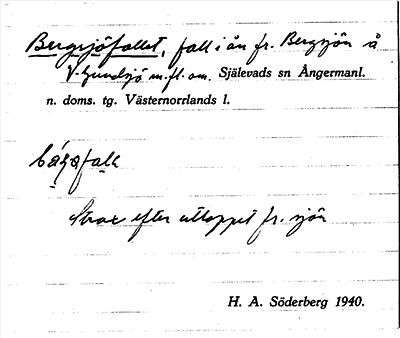 Bergsjöfallet, fall i ån fr. Bergsjön å
V. Gundsjö m. fl. om. Själevads sn Ångermanl.
n. doms. tg. Västernorrlands l.
Strax efter utloppet fr. sjön
H. A. Söderberg 1940.